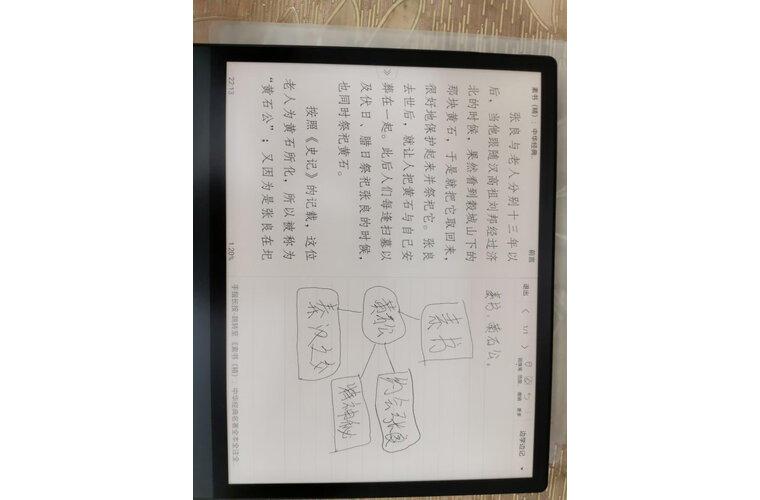 素书（精）：中华经典
前言
张良与老人分别十三年以
后，当他跟随汉高祖刘邦经过济
北的时候，果然看到毂城山下的
那块黄石，于是就把它取回来，
很好地保护起来并祭祀它。张良
去世后，就让人把黄石与自己安
葬在一起。此后人们每逢扫墓以
及伏日、腊日祭祀张良的时候，
也同时祭祀黄石。
按照《史记》的记载，这位
老人为黄石所化，所以被称为
“黄石公”；又因为是张良在圯
22:13
1.20%
退出
1/1
撤销
更多
边学边记
素书，黄石公。
素书
黄石公
秦汉之交
约会张良
手指长按 跳转至《素书（精）：中华经典名著全本全注全